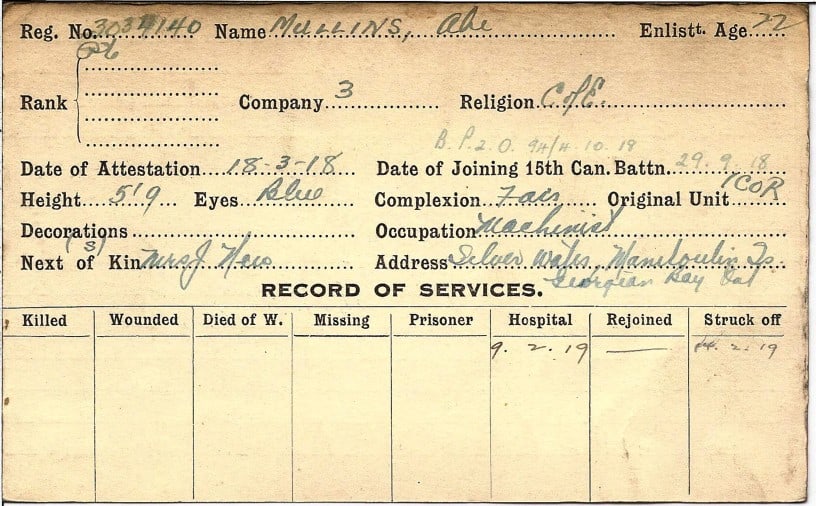 Reg. No. 3034140 Name MULLINS, Abe Enlistt. Age 22
Pte
Rank Company 3 Religion C of E.
B.P.2.0. 94/4.10.18
Date of Attestation 18-3-18 Date of Joining 15th Can. Battn. 29.9.18
Height 5'9 Eyes Blue Complexion Fair Original Unit 1COR
Decorations Occupation Machinist
(3)
Next of Kin Mrs J Address Silver Water, Manitoulin Is.
Georgian Bay Ont
RECORD OF SERVICES.
Killed Wounded Died of W. Missing Prisoner Hospital Rejoined Struck off
9.2.19 — 2.19